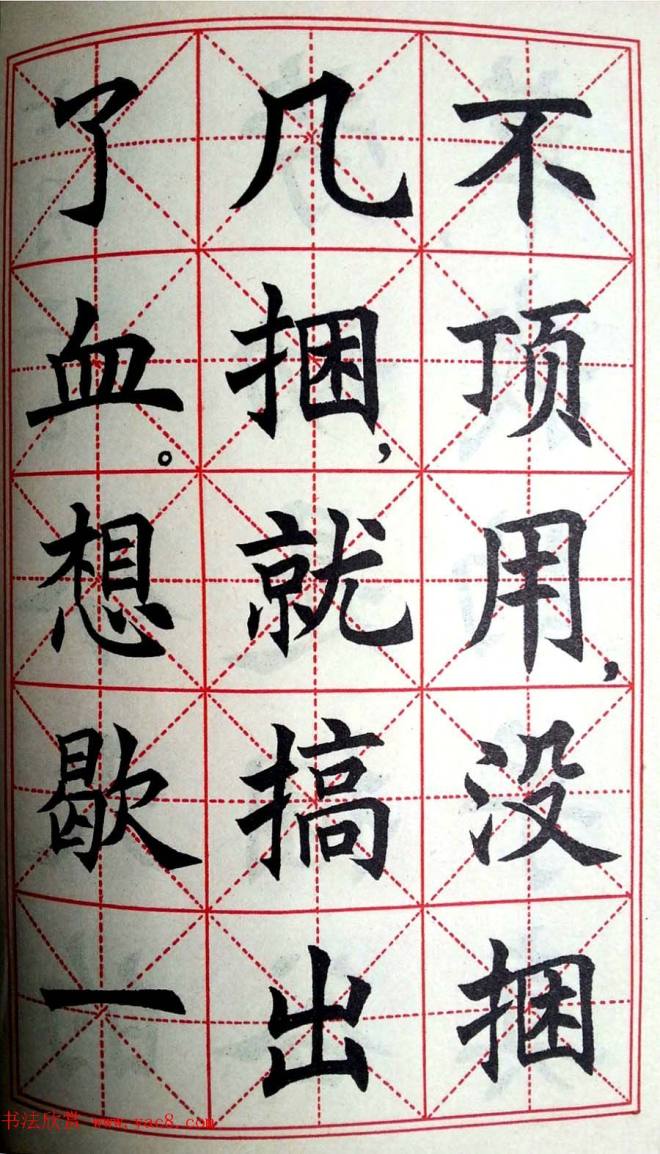 不顶用，没捆
几捆，就搞出
了血。想歇一
书法欣赏 www.yac8.com